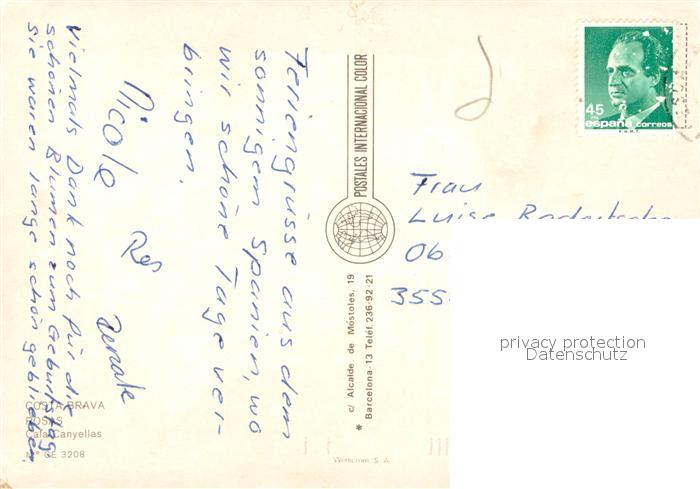 Feriengrüsse aus dem
sonnigem Spanien, wo
wir schöne Tage ver-
bringen.
Nicole
Renate
Vielmals Dank noch für die
schönen Blumen zum Geburtstag
sie waren lange schön geblieben
COSTA BRAVA
ROSAS
Cala Canyellas
Nº CE 3208
POSTALES INTERNACIONAL COLOR
c/ Alcalde de Móstoles, 19
* Barcelona-13 Teléf. 236-92-21
45
PTA
españa correos
F.N.M.T.
Frau
Luise
Ob
355
privacy protection
Datenschutz